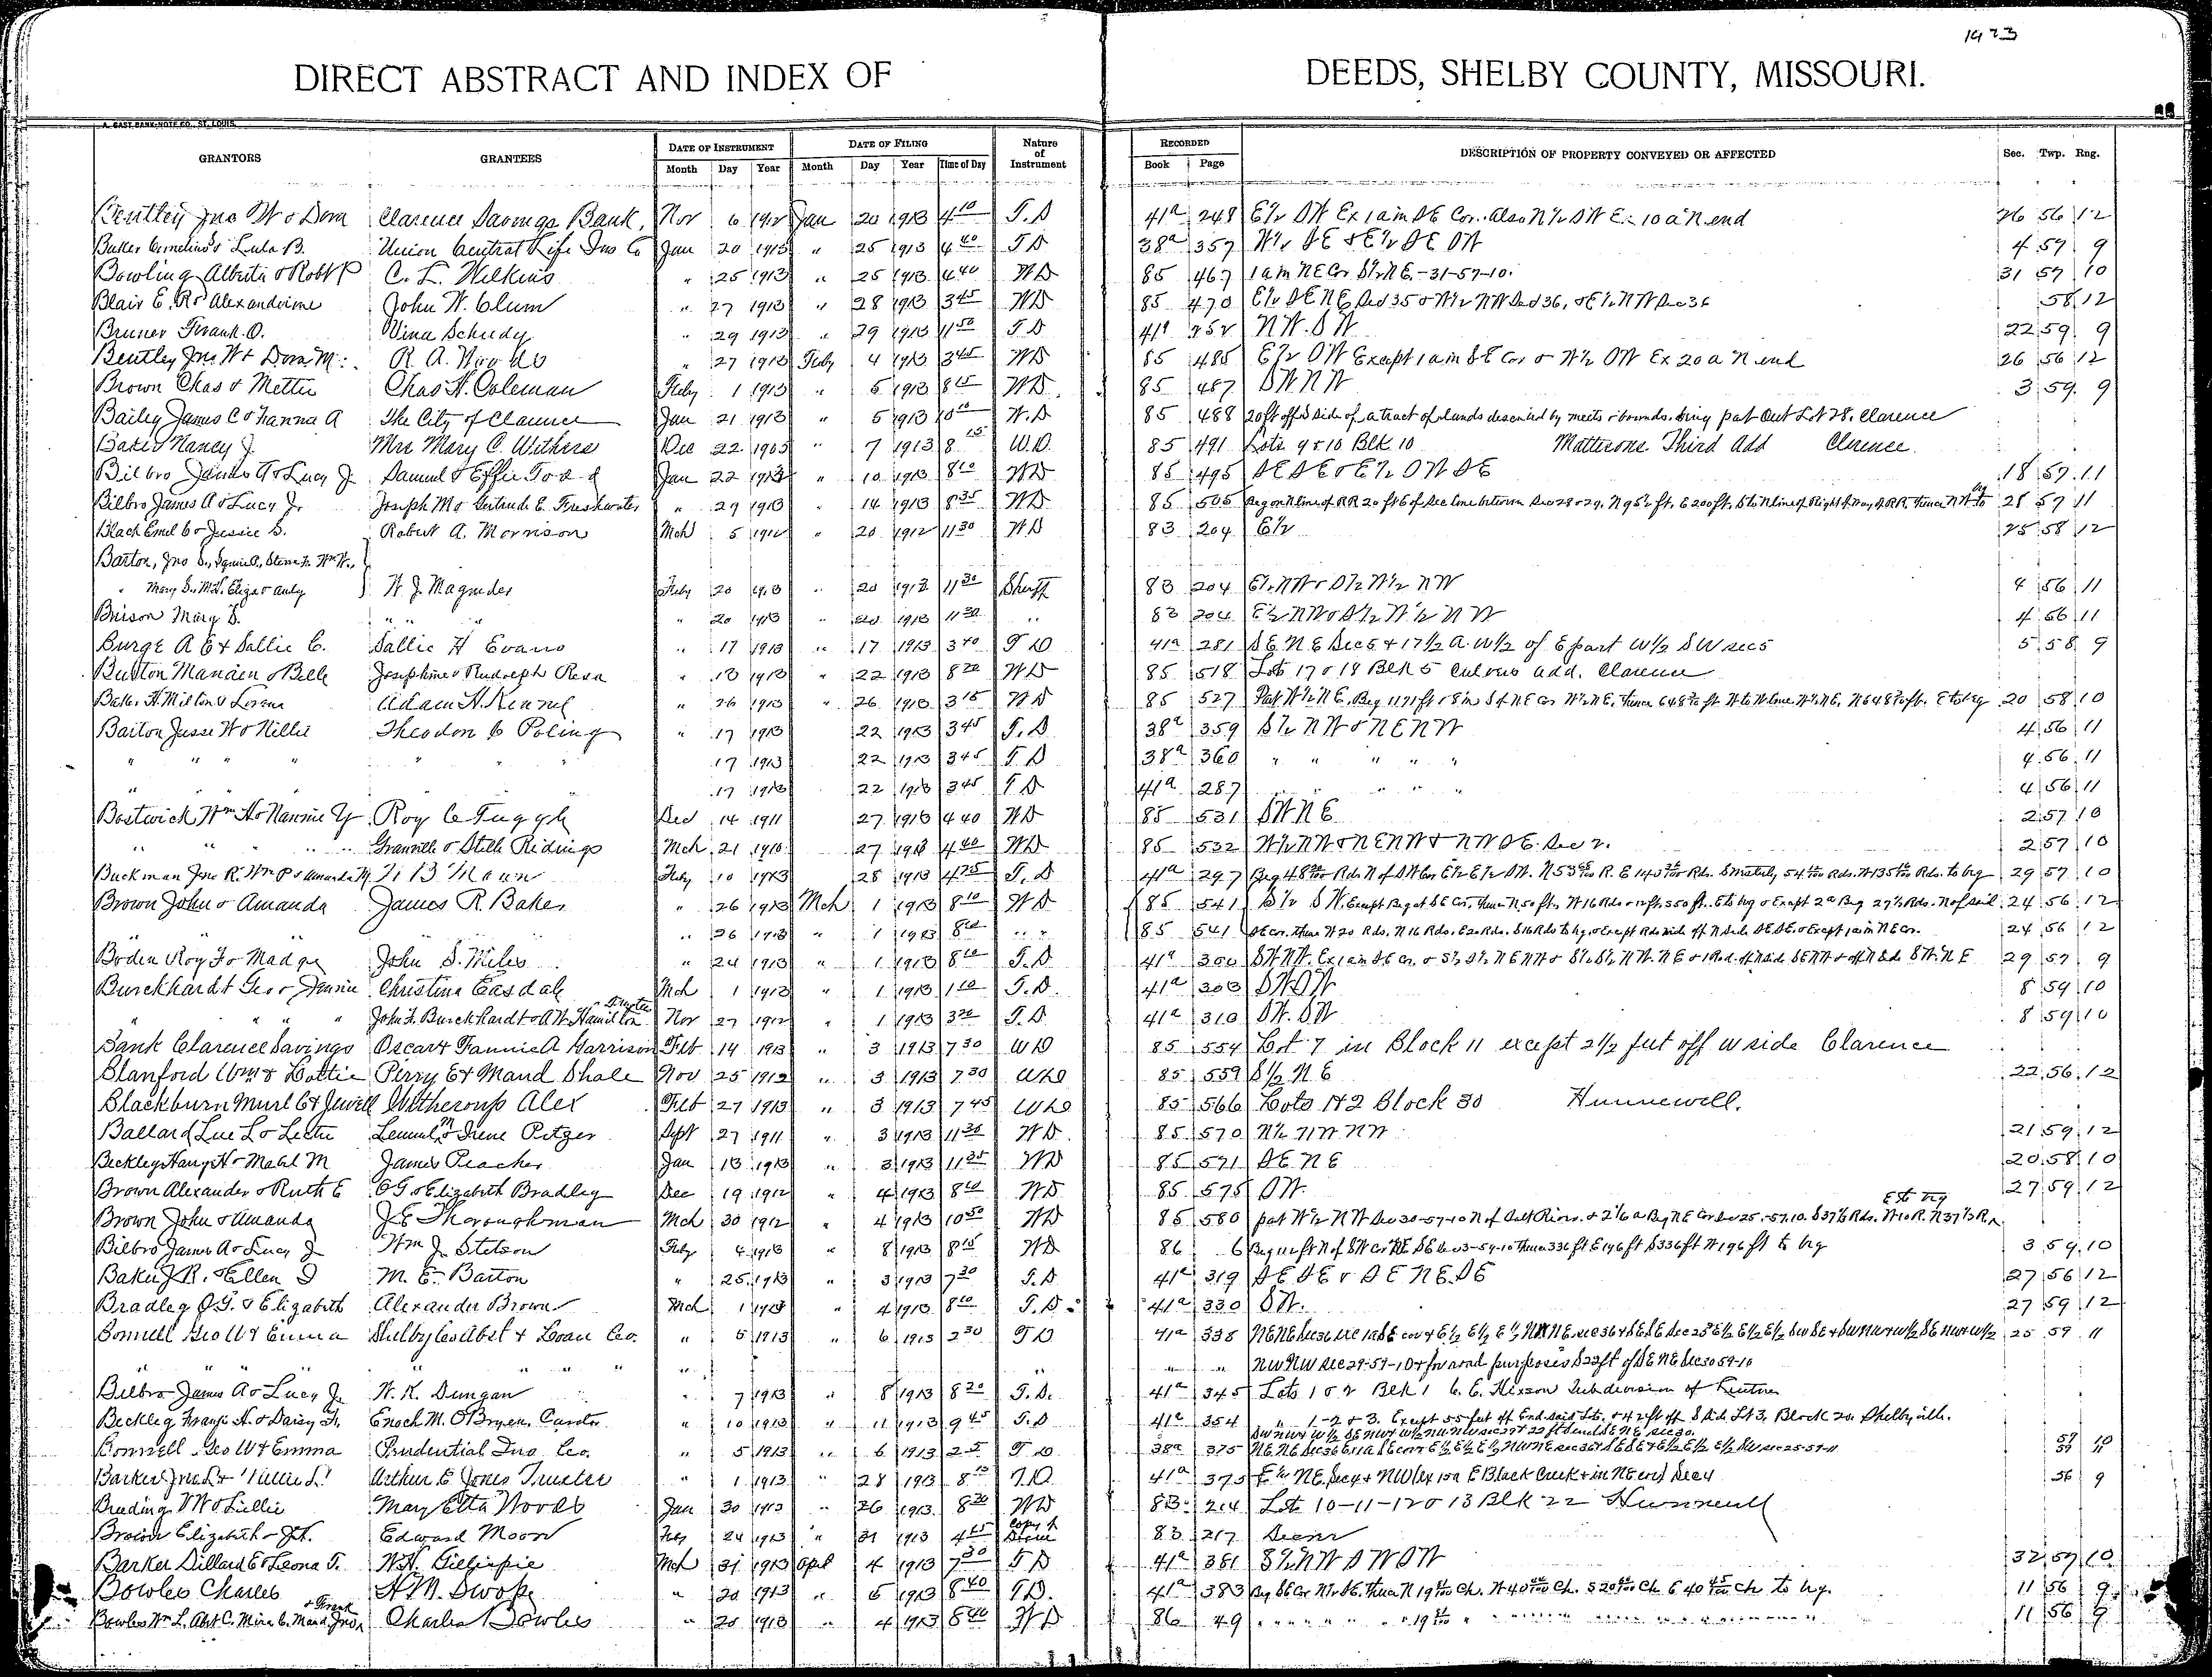 1923
DIRECT ABSTRACT AND INDEX OF DEEDS, SHELBY COUNTY, MISSOURI.
A. GAST BANK-NOTE CO., ST. LOUIS.
GRANTORS GRANTEES DATE OF INSTRUMENT DATE OF FILING Nature of Instrument RECORDED DESCRIPTION OF PROPERTY CONVEYED OR AFFECTED Sec. Twp. Rng.
Month Day Year Month Day Year Time of Day Book Page
Bentley Jno W & Dora Clarence Savings Bank, Nov 6 1912 Jan 20 1913 4 10 T. D 41a 248 E½ SW Ex 1 a in SE Cor. Also W½ SW Ex 10 a N. end 26 56 12
Butler Cornelius & Lula B. Union Central Life Ins Co Jan 20 1913 " 25 1913 4 40 T D 38a 357 W½ SE & E½ SE SW 4 57 9
Bowling Alberta & Robt P C. L. Wilkins " 25 1913 " 25 1913 4 40 WD 85 467 1 a in NE Cor S½ NE - 31-57-10. 31 57 10
Blair E. R & Alexandrine John W. Clum " 27 1913 " 28 1913 3 45 WD 85 470 E½ SE NE Sec 35 & W½ NW Sec 36, & E½ NW Sec 36 58 12
Bruner Frank. O. Vina Schudy " 29 1913 " 29 1913 11 50 T D 41a 252 NW. SW 22 59 9
Bentley Jno W & Dora M. R. A. Woods " 27 1913 Feby 4 1913 3 45 WD 85 485 E½ SW Except 1 a in SE Cor & W½ SW Ex 20 a N end 26 56 12
Brown Chas & Mettie Chas H. Coleman Feby 1 1913 " 5 1913 8 15 WD. 85 487 SW NW 3 59 9
Bailey James C & Hanna A The City of Clarence Jan 21 1913 " 5 1913 10 10 W. D 85 488 20 ft off S side of a tract of lands described by meets & bounds. being part Out Lot 28. Clarence
Baker Nancy J. Mrs Mary C. Withers Dec 22 1905 " 7 1913 8 15 W.D. 85 491 Lots 9 & 10 Blk 10 Mattersons Third Add Clarence
Bilbro James A & Lucy J Samuel & Effie Todd Jan 22 1913 " 10 1913 8 10 WD 85 495 SE SE & E½ SW SE 18 57 11
Bilbro James A & Lucy J. Joseph M & Gertrude E. Freshwater " 29 1913 " 14 1913 8 35 WD 85 505 Beg on N line of RR 20 ft E of Sec line between Sec 28 & 29, N 95½ ft, E 200 ft, S to N line of Right of Way of RR. thence NW to beg 28 57 11
Black Emel C & Jessie S. Robert A. Morrison Mch 5 1912 " 20 1912 11 30 WD 83 204 E½ 25 58 12
Barton, Jno S., Squire A., Steve F. Wm W.,
" Mary S., M.L. Eliza & Auty W. J. Magruder Feby 20 1913 " 20 1913 11 30 Sheriff 83 204 E½ NW & S½ W½ NW 4 56 11
Brison Mary S. " " " " 20 1913 " 20 1913 11 30 " 83 204 E½ NW & S½ W½ NW 4 56 11
Burge A E & Sallie C. Sallie H Evans " 17 1913 " 17 1913 3 40 T D 41a 281 S E. N E Sec 5 & 17½ A. W½ of E part W½ SW sec 5 5 58 9
Burton Mancien & Belle Josephine & Rudolph Resa " 13 1913 " 22 1913 8 20 WD 85 518 Lots 17 & 18 Blk 5 Culvers add. Clarence
Baker H. Milton & Lorena Adam H. Kimmel " 26 1913 " 26 1913 3 15 WD 85 527 20 58 10
Barton Jesse W & Nellie Theodore C Poling " 17 1913 22 1913 3 45 T. D 38a 359 S½ NW & NE NW 4 56 11
" " " " " " " 17 1913 22 1913 3 45 T D 38a 360 " " " " " 4 56 11
" 17 1913 22 1913 3 45 T D 41a 287 " " " " 4 56 11
Bostwick Wm H & Nannie Y Roy C Tuggle Dec 14 1911 27 1913 4 40 WD 85 531 SW NE 2 57 10
" " " " Granville & Stella Ridings Mch 21 1910 27 1913 4 40 WD 85 532 W½ NW & NE NW & NW SE. Sec 2. 2 57 10
Buckman Jno R. Wm P & Amanda M W B Mann Feby 10 1913 28 1913 4 25 T. D 41a 297 29 57 10
Brown John & Amanda James R. Baker " 26 1913 Mch 1 1913 8 10 WD 85 541 S½ SW. Except Beg at SE Cor, thence N. 50 ft, W 16 Rds & 10 ft. S 50 ft. E to beg & Except 2 a Beg 27½ Rds. N of said 24 56 12
" 26 1913 " 1 1913 8 10 " " 85 541 SE cor. thence W 20 Rds. N 16 Rds. E 20 Rds. S 16 Rds to beg. & Except Rd side off N side SE SE. & Except 1 a in NE cor. 24 56 12
Boden Roy F & Madge John S. Miles " 24 1913 " 1 1913 8 10 T. D 41a 300 29 57 9
Burckhardt Geo & Jennie Christina Easdale Mch 1 1913 " 1 1913 1 10 T. D. 41a 303 SW SW 8 59 10
" " " " John F. Burckhardt & A W Hamilton " Trustee Nov 27 1912 " 1 1913 3 20 T. D 41a 310 SW. SW 8 59 10
Bank Clarence Savings Oscar & Fannie A Garrison Feb 14 1913 " 3 1913 7 30 WD 85 554 Lot 7 in Block 11 except 2½ feet off W side Clarence
Blanford Wm & Lottie Perry E & Maud Shale Nov 25 1912 " 3 1913 7 30 WD 85 559 S½ N E 22 56 12
Blackburn Murl C & Jewell Witheroup Alex Feb 27 1913 " 3 1913 7 45 WD 85 566 Lots 1 & 2 Block 30 Hunnewell.
Ballard Lue L & Lectie Lemuel M & Irene Pitzer Sept 27 1911 " 3 1913 11 30 WD. 85 570 N½ NW NW 21 59 12
Beckley Harry H & Mabel M James Peacher Jan 13 1913 " 3 1913 11 25 WD 85 571 SE NE 20 58 10
Brown Alexander & Ruth E O G & Elizabeth Bradley Dec 19 1912 " 4 1913 8 10 WD 85 575 SW. 27 59 12
Brown John & Amanda J E Thoroughman Mch 30 1912 " 4 1913 10 50 WD 85 580 part W½ NW Sec 30-57-10 N of Salt River. & 2½ a Beg NE Cor Sec 25-57-10. S 37½ Rds. W 10 R. N 37½ R. E to beg
Bilbro James A & Lucy J Wm J. Stetson Feby 4 1913 " 8 1913 8 15 WD 86 6 3 59 10
Baker J. R. & Ellen D M. E. Barton " 25 1913 " 3 1913 7 30 T. D 41a 319 SE SE & SE NE. SE 27 56 12
Bradley O. G. & Elizabeth Alexander Brown Mch 1 1913 " 4 1913 8 10 T. D. 41a 330 SW. 27 59 12
Bonnell Geo W & Emma Shelby Co Abst & Loan Co. " 5 1913 " 6 1913 2 30 T D 41a 338 25 59 11
" " " " " " " " " NW NW sec 29-59-10 & for road purposes S 22 ft of SE NE Sec 30 59-10
Bilbro James A & Lucy J. W. K. Dungan " 7 1913 " 8 1913 8 20 T. D. 41a 345 Lots 1 & 2 Blk 1 C. E. Hixson Subdivision of Lentner
Beckley & Daisy Enoch M. O'Bryen, Curator " 10 1913 " 11 1913 9 45 T. D 41a 354 " " 1-2 & 3. Except 55 feet off End said Lts. & 42 ft off S side Lt 3, Block 20 Shelbyville.
Bonnell Geo W & Emma Prudential Ins Co. " 5 1913 " 6 1913 2 35 T D 38a 375
Barker Jno L & Willie L. Arthur E Jones Trustee " 1 1913 " 28 1913 8 15 T. D. 41a 375 56 9
Breeding V W & Lillie Mary Etta Woods Jan 30 1913 " 26 1913 8 20 WD 83 214 Lots 10-11-12 & 13 Blk 22 Hunnewell
Brown Elizabeth Edward Moon Feby 24 1913 " 31 1913 4 05 Copy of Decree 83 217 Decree
Barker Dillard E & Leona T. W. H. Gillispie Mch 31 1913 Apl 4 1913 7 30 T D 41a 381 S½ NW SW SW 32 57 10
Bowles Charles H. M. Swope " 20 1913 " 5 1913 8 40 T. D. 41a 383 11 56 9
Bowles Wm L. Abt C. Mina C. Maud Jno & Frank Charles Bowles " 20 1913 " 4 1913 8 40 WD 86 49 11 56 9